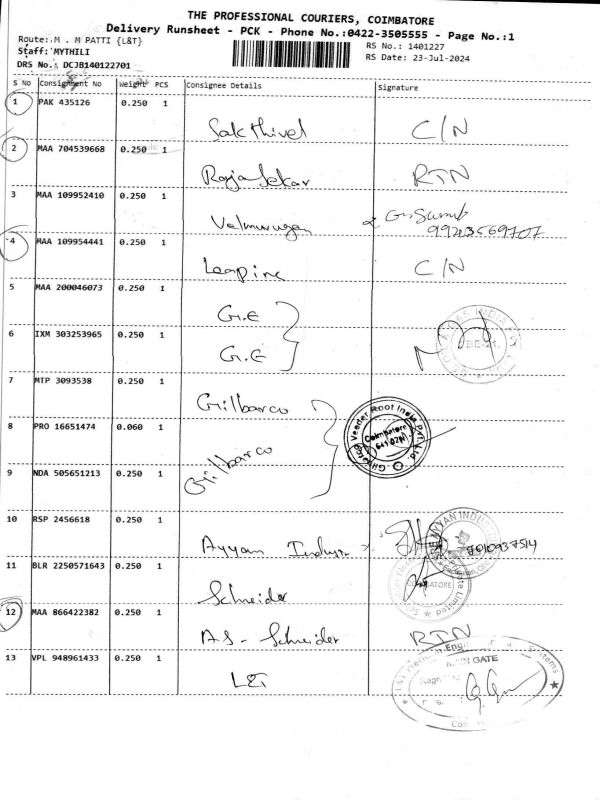 THE PROFESSIONAL COURIERS, COIMBATORE
Delivery Runsheet - PCK - Phone No.:0422-3505555 - Page No.:1
Route: M . M PATTI {L&T}
RS No.: 1401227
Staff: MYTHILI
RS Date: 23-Jul-2024
DRS No.: DCJB140122701
S No Consignment No Weight PCS Consignee Details Signature
1 PAK 435126 0.250 1
Sakthivel C/N
2 MAA 704539668 0.250 1
Rajasekar RTN
3 MAA 109952410 0.250 1
Velmurugan
4 MAA 109954441 0.250 1
C/N
5 MAA 200046073 0.250 1
G.E
6 IXM 303253965 0.250 1
G.E
7 MTP 3093538 0.250 1
Gilbarco
8 PRO 16651474 0.060 1
Gilbarco
Gilbarco Veeder Root India Pvt. Ltd.
Coimbatore
9 NDA 505651213 0.250 1
10 RSP 2456618 0.250 1
Ayyan
11 BLR 2250571643 0.250 1
Schneider
COIMBATORE
Private Limited
12 MAA 866422382 0.060 1
A.S - Schneider RTN
13 VPL 948961433 0.250 1
L&T
MAIN GATE